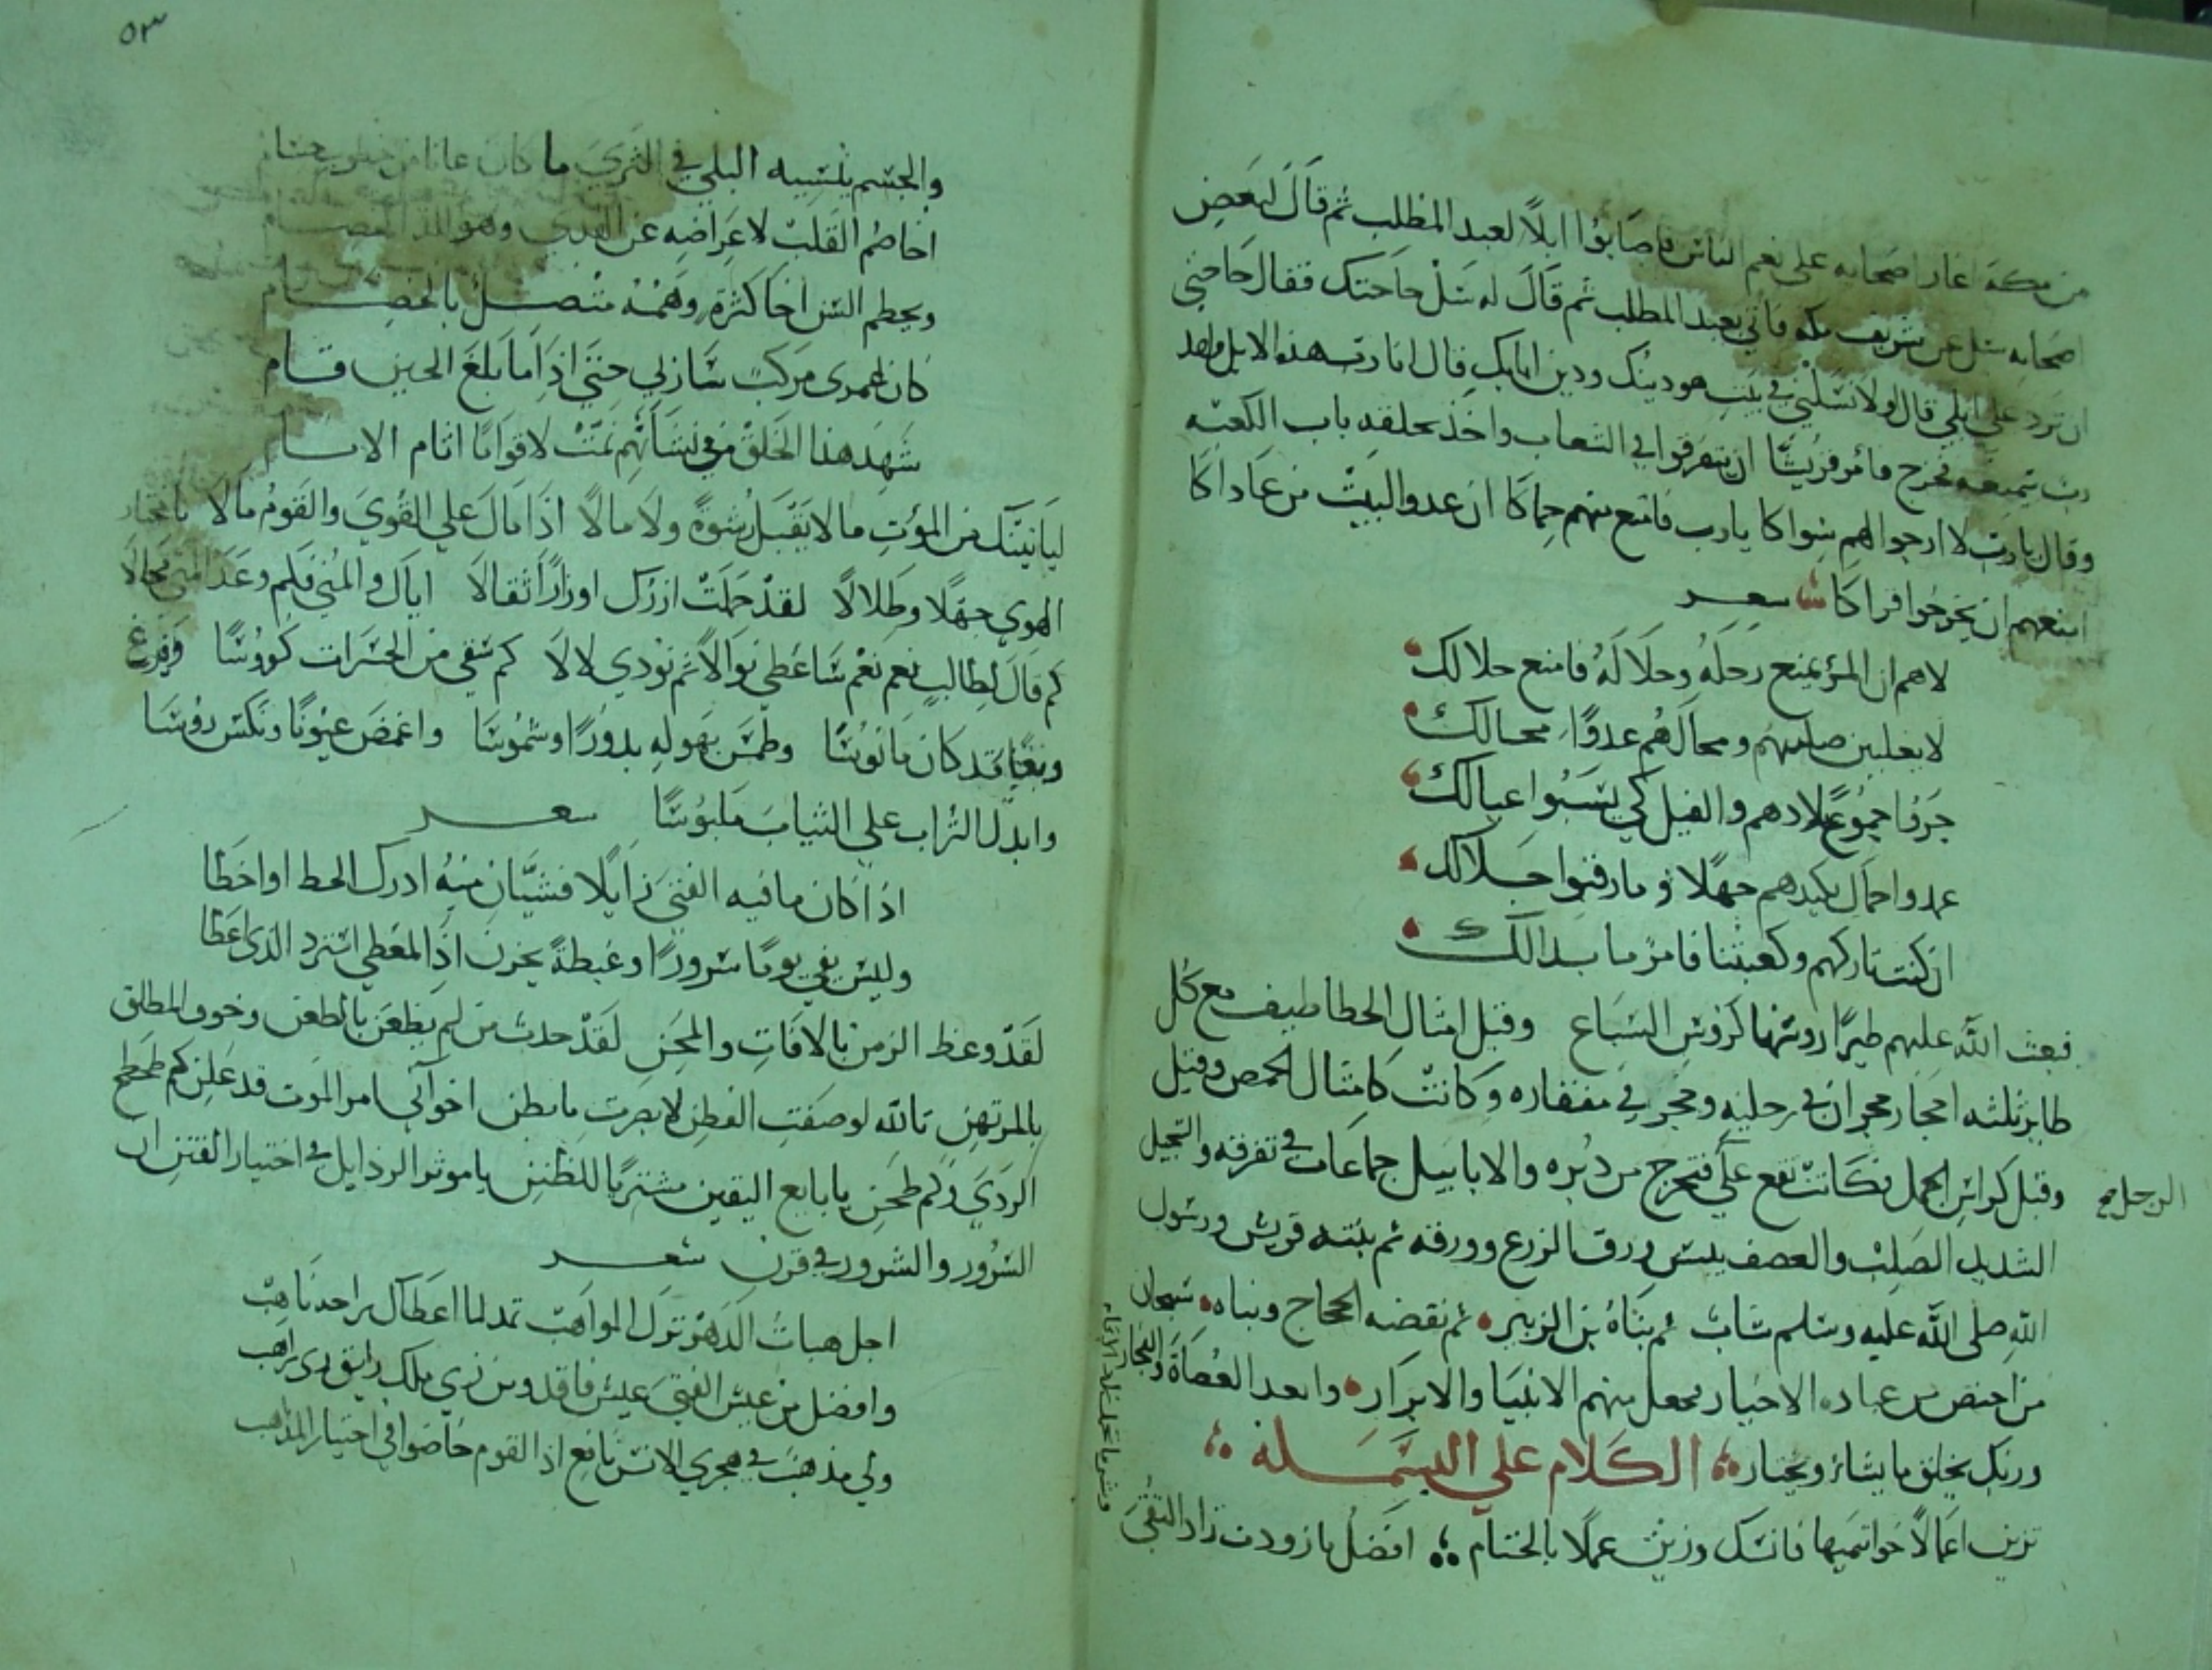 من مكة اغار اصحابه على نعم الناس فاصابوا ابلًا لعبد المطلب ثم قال لبعض
اصحابه سل عن شريف مكه فاتي بعبد المطلب ثم قال له سل حاجتك فقال حاجتي
ان ترد علي ابلي قال اولا تسلني في بيت هو دينك ودين ابايك قال انا رب هذه الابل ولهذا
رب سيمنعه فخرج فامر قريشًا ان يتفرقوا في الشعاب واخذ بحلقه باب الكعبه
وقال يارب لا ارجوا لهم سواكا يارب فامنع منهم حماكا ان عدو البيت من عاداكا
امنعهم ان يخربوا قراكا شعر
لاهم ان المرؤ يمنع رحله وحلاله فامنع حلالك
لا يغلبن صليبهم ومحالهم عدوًا محالك
جروا جموع بلادهم والفيل كي يسبوا عيالك
عمدوا حماك بكيدهم جهلا وما رقبوا جلالك
ان كنت تاركهم وكعبتنا فامر ما بدا لك
فبعث الله عليهم طيرًا روسها كروس السباع وقيل امثال الخطاطيف مع كل
طاير ثلثه احجار حجران في رجليه وحجر في منقاره وكانت كامثال الحمص وقيل
وقيل كراس الجمل فكانت تقع علي فتخرج من دبره والابابيل جماعات في تفرقه والسجيل
الرجل صح
الشديد الصلب والعصف يبس ورق الزرع وورقه ثم بنته قريش ورسول
الله صلى الله عليه وسلم شاب ثم بناه بن الزبير ثم نقضه الحجاج وبناه سبحان
من اختص من عباده الاخيار فجعل منهم الانبيا والابرار وابعد العصاة والفجار
وربك يخلق ما يشاء ويختار الكلام علي البسمله
تزين اعمالًا خواتيمها فانسك وزين عملًا بالختام افضل ما زودت زاد التقى
وشر ما تحمله
٥٣
والجسم يلبسه البلي في الثري ما كان عانا من
اخاصم القلب لاعراضه عن وهو الد الخصام
ويحطم السن اخا كثرة وهمه متصل بالخصام
كان لعمري مركب سازلي حتى اذا ما بلغ الحين قام
شهد هذا الخلق في نشأتهم تمت لاقوامًا اثام الاسام
ليأتينك من الموت ما لا يقبل رشوة ولا مالا اذا مال علي القوي والقوم مالا يا مختار
الهوي جهلا وضلالا لقد حملت ازرك اوزارًا ثقالا اياك والمني فكم وعد المني محالا
كم قال لطالب نعم نعم سأعطي نوالًا ثم نودي لا لا كم سقي من الحسرات كؤوسًا وفرغ
وبعيا قد كان مانوسًا وطمس بهوله بدورًا وشموسًا واغمض عيونًا ونكس روسًا
وابدل التراب علي الثياب ملبوسًا شعر
اذا كان ما فيه الفتي زايلًا فشيان منه ادرك الحط او اخطا
وليس يفي يومًا سرورًا وغبطةً بحزن اذا المعطي استرد الذي اعطا
لقد وعظ الزمن بالافات والمحن لقد حدث من لم يظعن بالظعن وخوف المطلق
بالمرتهن تالله لو صفت الفطن لابصرت ما بطن اخواني امر الموت قد علن كم طحطح
الردي وكم طحن يا بايع اليقين مشتريًا للظنن يا موثر الرذايل في اختيار الفتن ان
السرور والشرور في قرن شعر
اجل هبات الدهر ترك المواهب تمد لما اعطاك راحة ناهب
وافضل من عيش الفتي عيش فاقد ومن زي ملك رايق زي راهب
ولي مذهب في هجري الانس نافع اذا القوم خاضوا في اختيار المذاهب